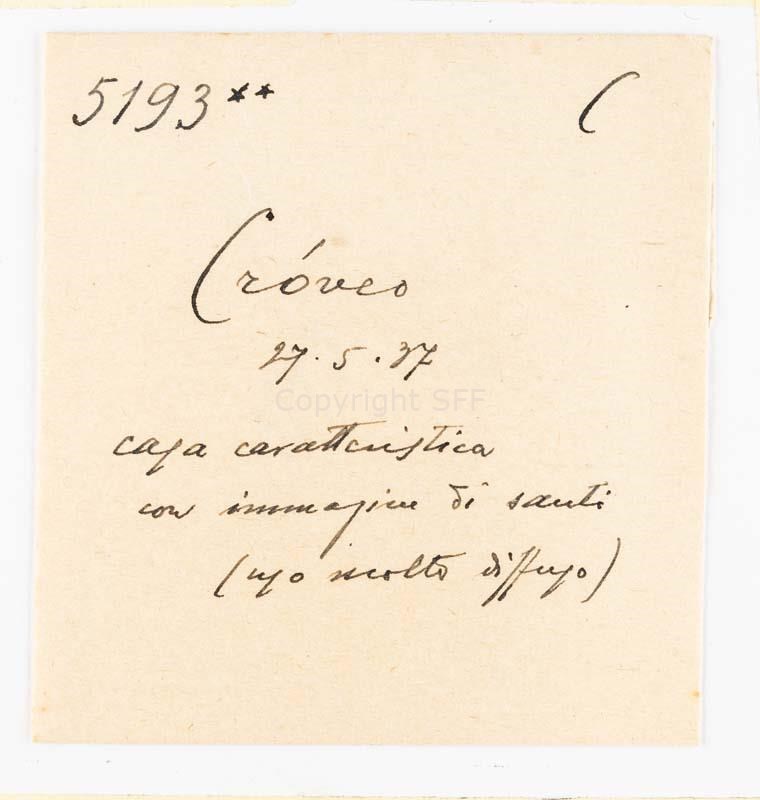 5193** C
Cróveo
27.5.37
Copyright SFF
casa caratteristica
con immagini di santi
(uso molto diffuso)